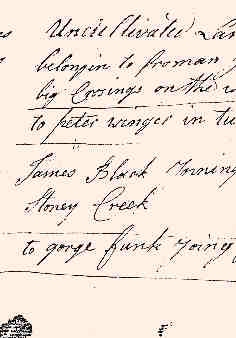 Uncultivated Lan
belongin to froman
big Crosings on the
to peter winger in tu
James Black Joining
Stoney Creek
to gorge funk Joing